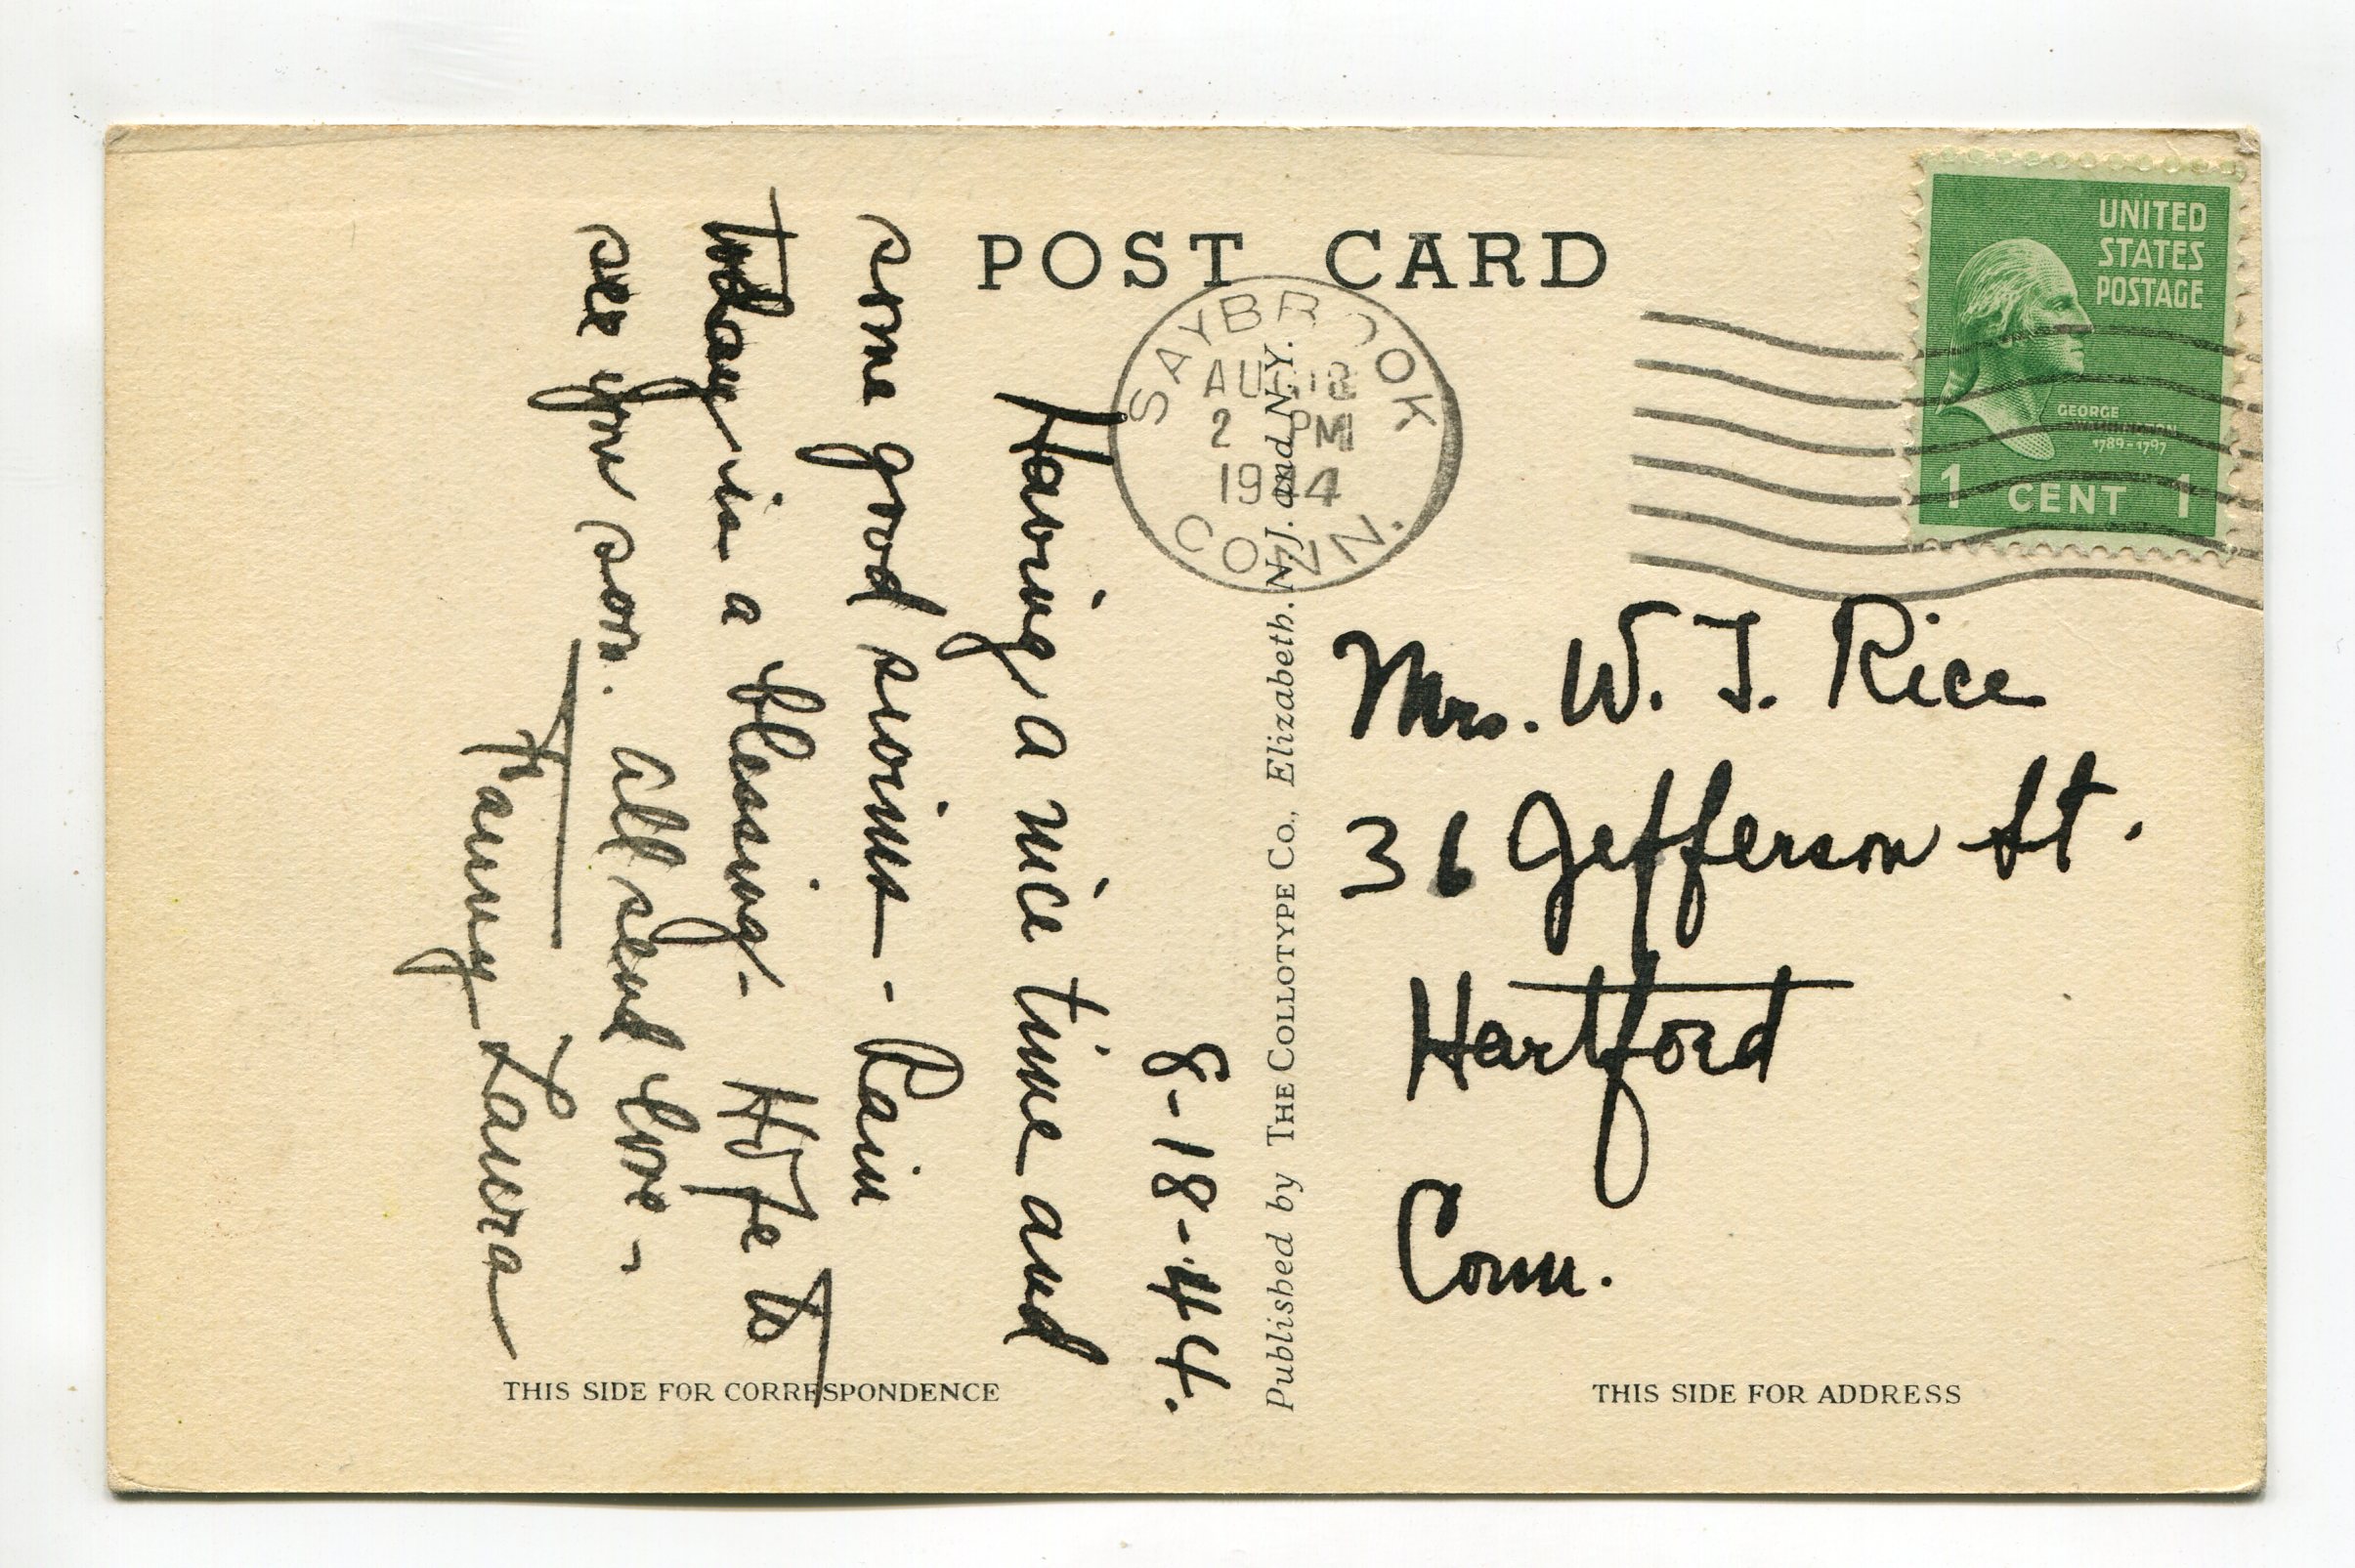 POST CARD
SAYBROOK
AUG 18
2 PM
1944
CONN.
UNITED
STATES
POSTAGE
GEORGE
WASHINGTON
1789-1797
1 CENT 1
8-18-44.
Having a nice time and
some good swims - Rain
today is a blessing - Hope to
see you soon. All send love -
Fanny Laura
Published by THE COLLOTYPE Co., Elizabeth. N.J. and N.Y.
Mrs. W. T. Rice
36 Jefferson St.
Hartford
Conn.
THIS SIDE FOR CORRESPONDENCE
THIS SIDE FOR ADDRESS